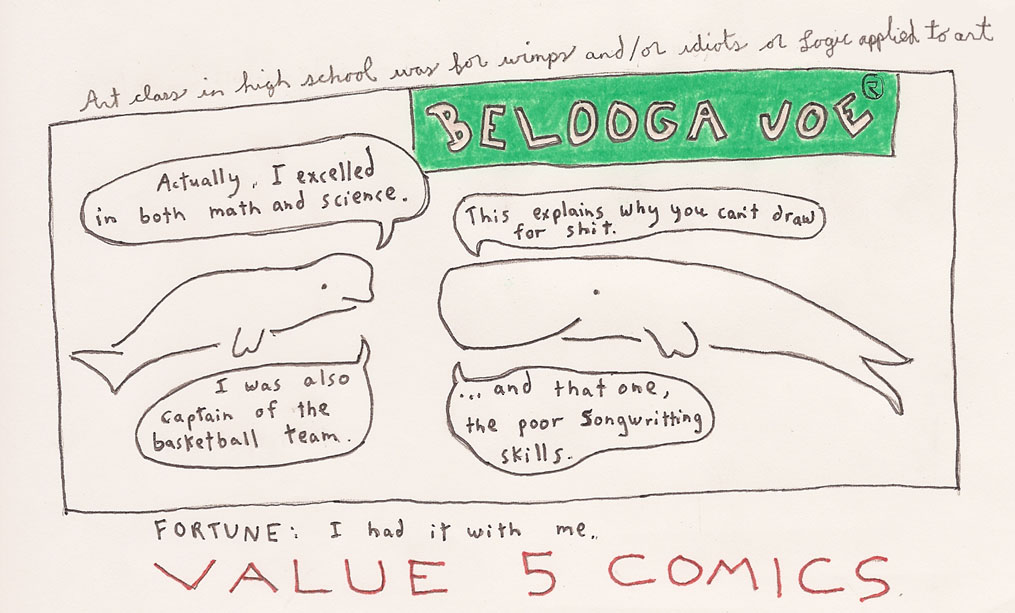 Art class in high school was for wimps and/or idiots or Logic applied to art
BELOOGA JOE ®
Actually, I excelled
in both math and science.
This explains why you can't draw
for shit.
I was also
captain of the
basketball team.
... and that one,
the poor songwritting
skills.
FORTUNE: I had it with me..
VALUE 5 COMICS